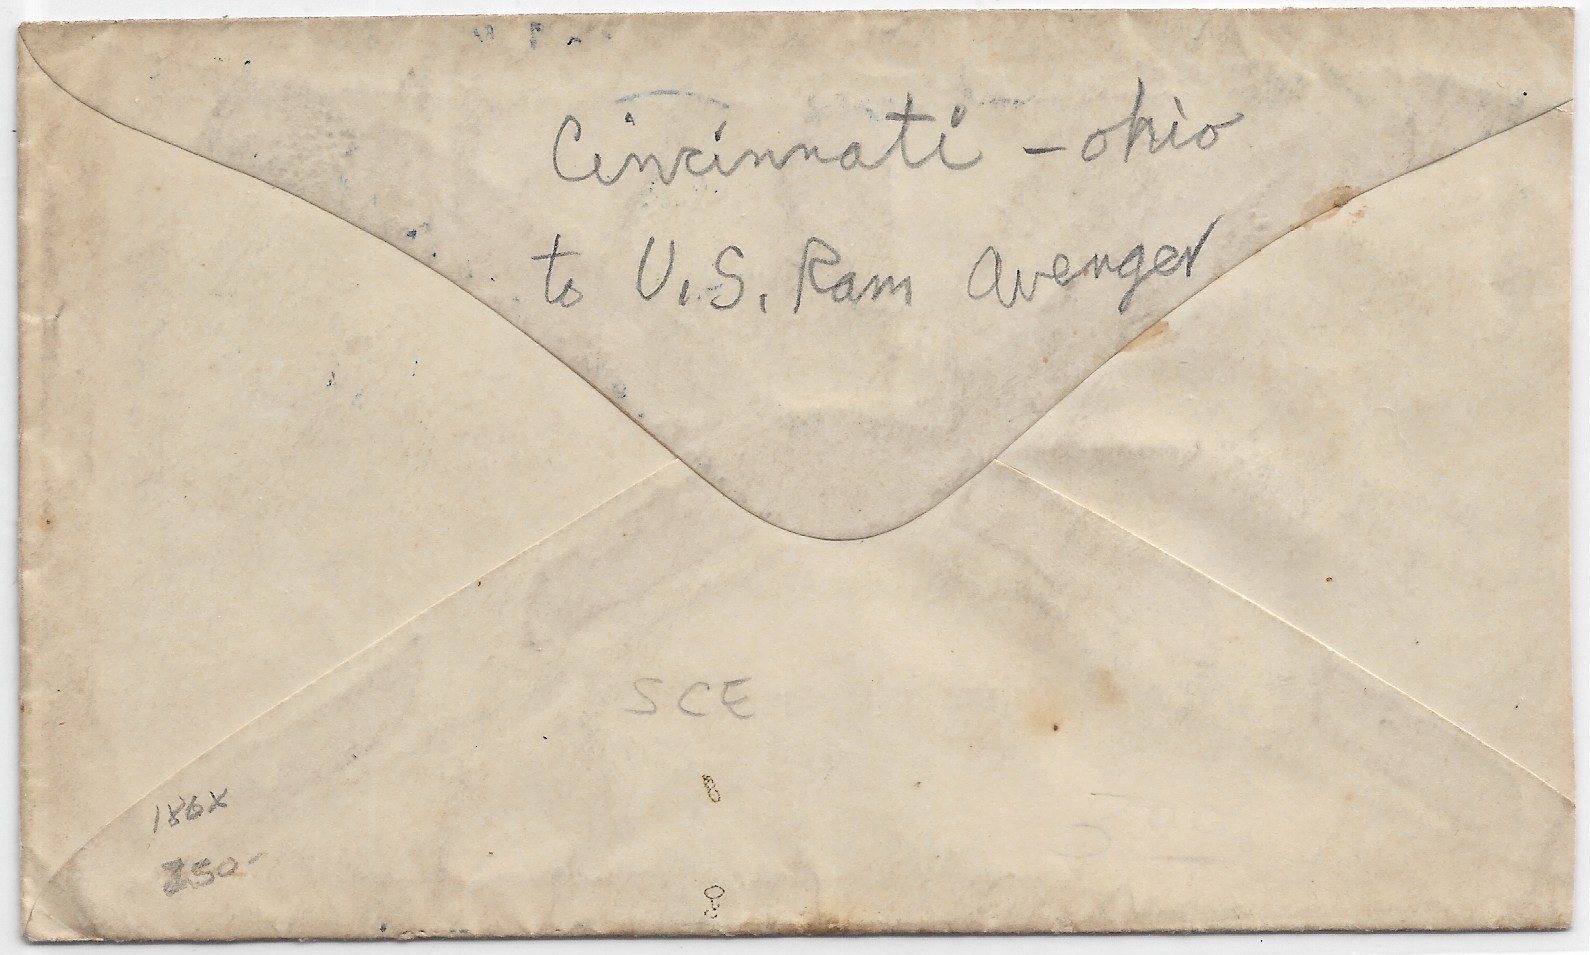 Cincinnati - Ohio
to U.S. Ram Avenger
SCE
186x